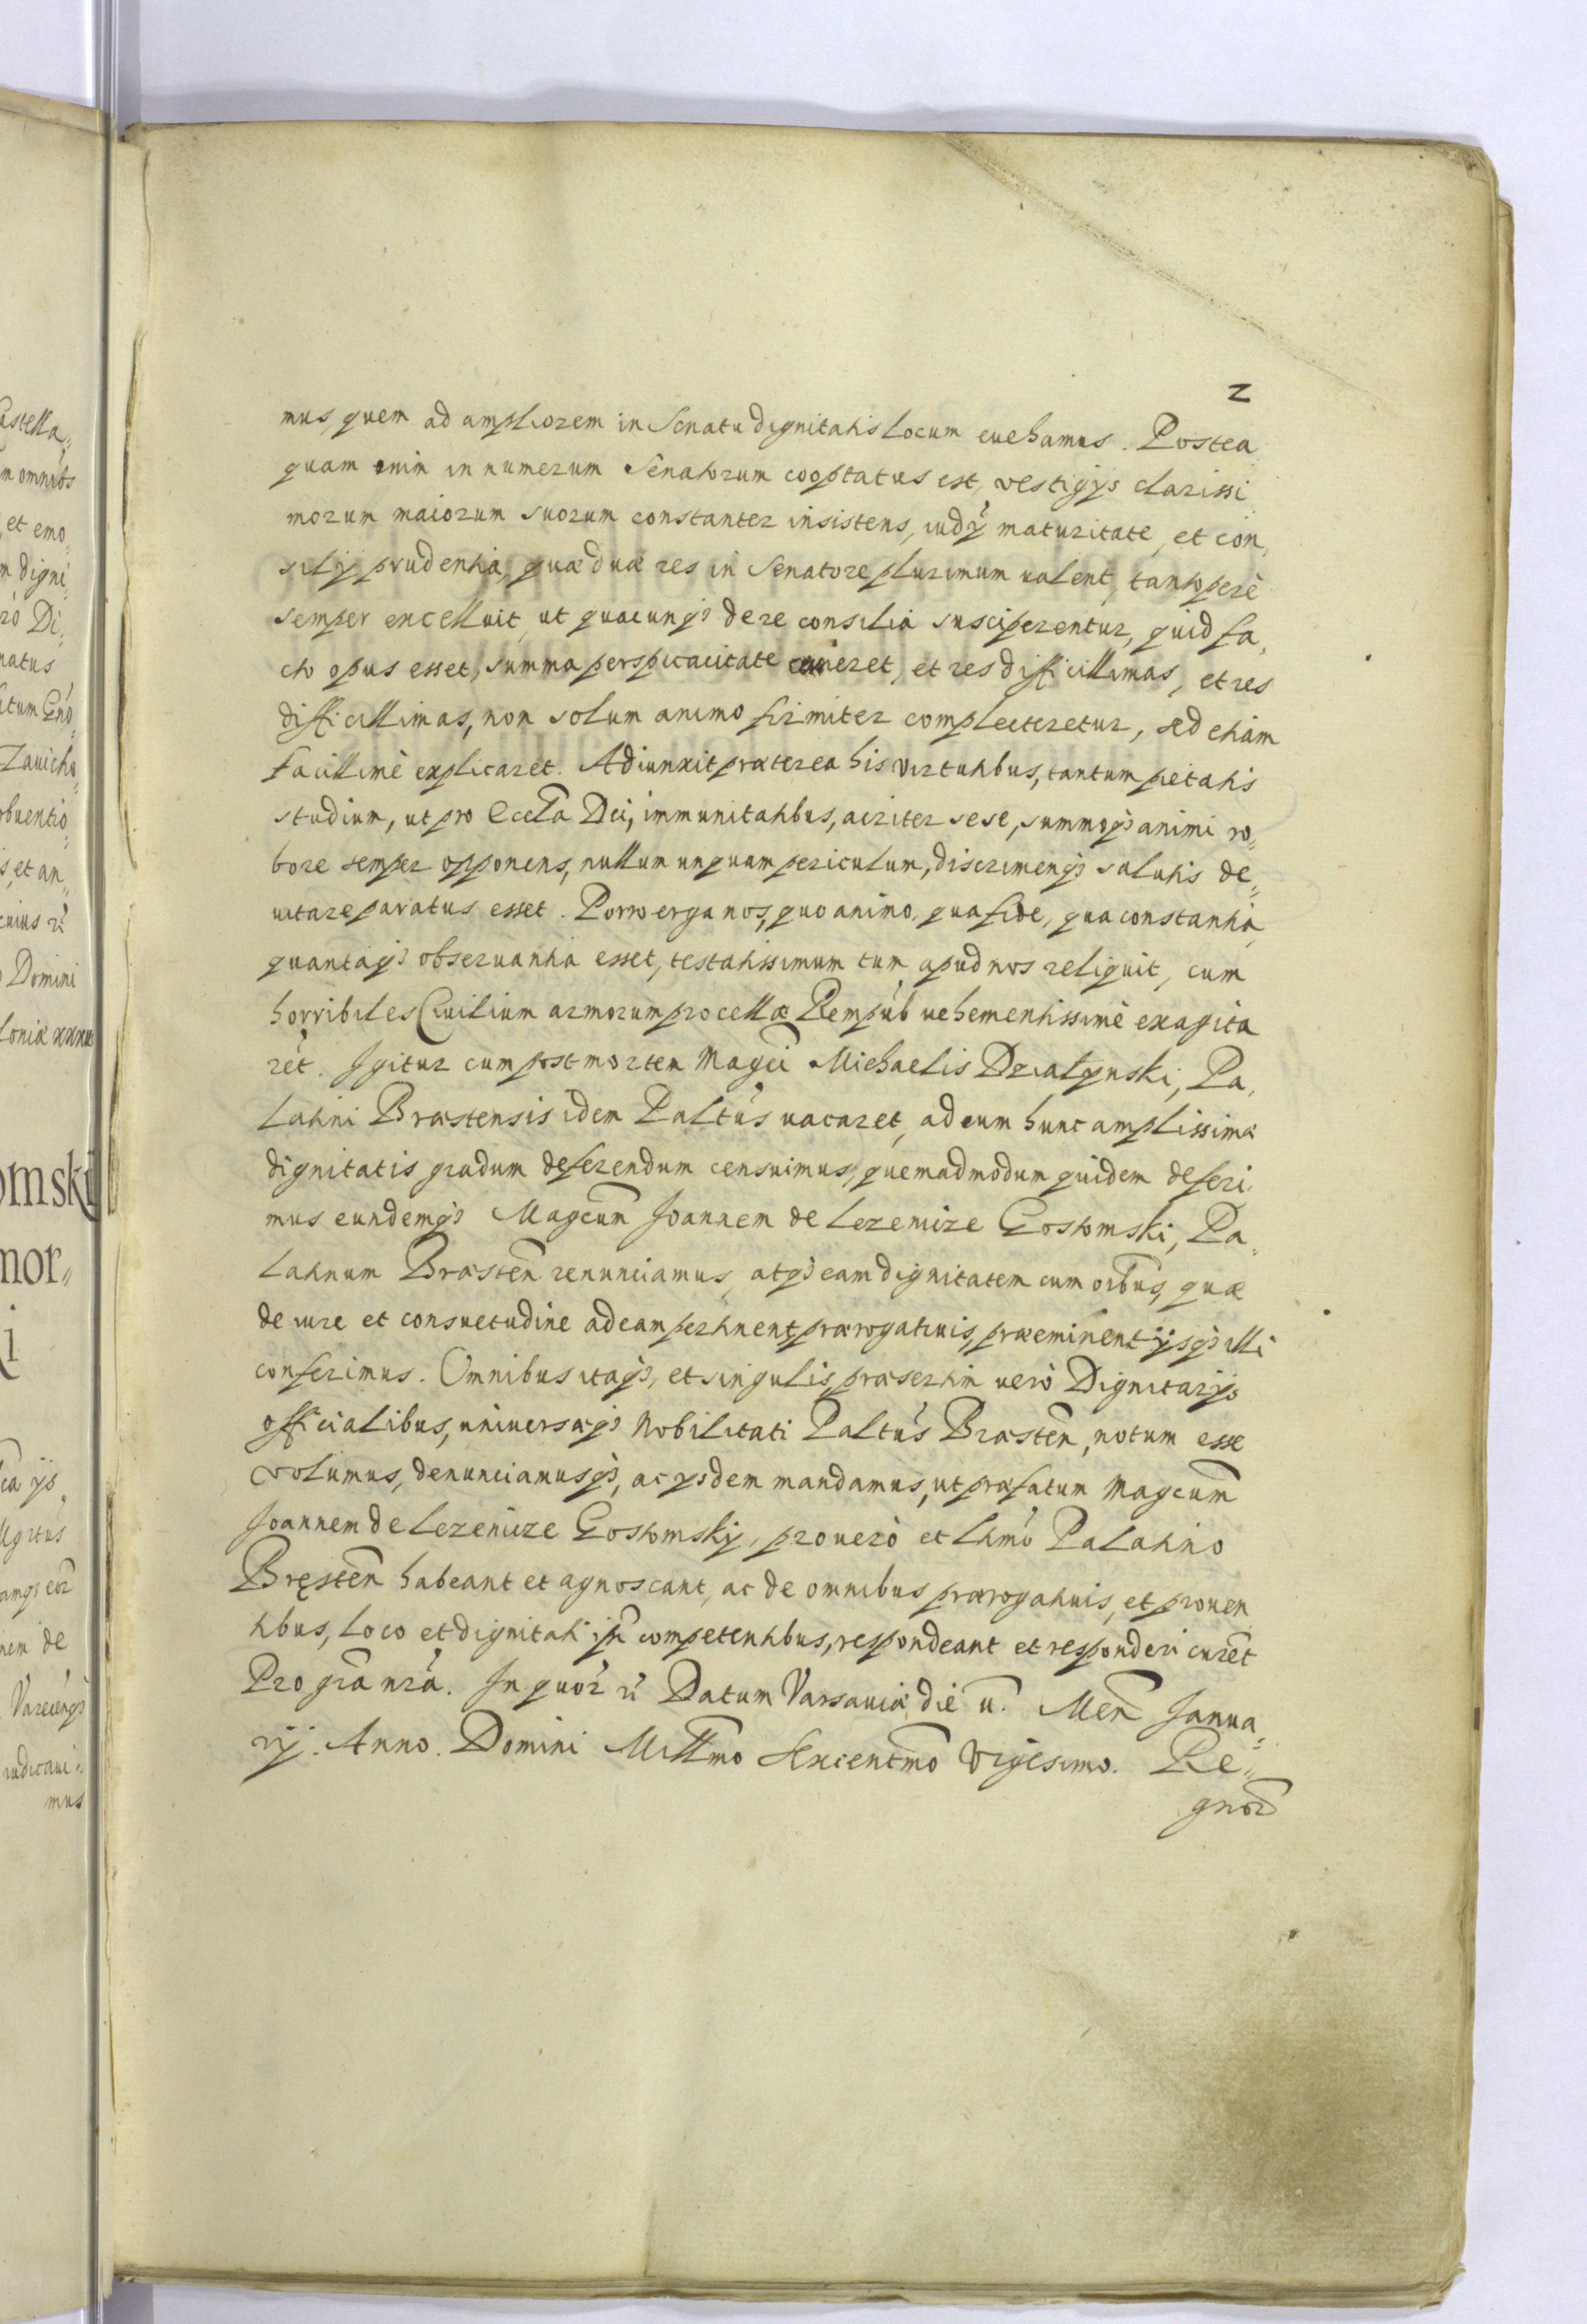 2
mus, quem ad ampliorem in Senatu dignitatis locum euehamus. Postea
quam enim in numerum Senatorum cooptatus est, vestigijs clarissi
morum maiorum suorum constanter insistens, iudÿ maturitate, et con,
silij prudentia, quæ duæ res in Senatore plurimum ualent, tantoperè
semper excelluit, ut quacunq3 de re consilia susciperentur, quid fa,
cto opus esset, summa perspicacitate cerneret, et res difficillimas, et res
difficillimas, non solum animo firmiter complecteretur, sed etiam
facillimè explicaret. Adiunxit præterea his virtutibus, tantum pietatis
studium, ut pro Eccla Dei, immunitatibus, acriter sese, summoq3 animi ro,,
bore semper opponens, nullum unquam periculum, discrimenq3 salutis de,,
uitare paratus esset. Porro erga nos, quo animo, qua fide, qua constantia,
quantaq3 obseruantia esset, testatissimum tum apud nos reliquit, cum
horribiles Ciuilium armorum procellæ Rempub uehementissimè exagita
ret. Igitur cum post mortem Magci Michaelis Dzialynski, Pa,
latini Bræstensis idem Paltus uacaret, ad eum hunc amplissimæ
dignitatis gradum deferendum censuimus, quemadmodum quidem deferi
mus eundemq3 Magcum Joannem de Lezenicze Gostomski, Pa,
latinum Bræsten renunciamus, atq3 eam dignitatem cum oibus, quæ
de iure et consuetudine ad eam pertinent prærogatiuis, præeminentijsq3 illi
conferimus. Omnibus itaq3, et singulis, præsertim uerò Dignitarijs
officialibus, uniuersæq3 Nobilitati Paltus Bræsten, notum esse
volumus, denunciamusq3, ac ijsdem mandamus, ut præfatum Magcum
Joannem de Lezenicze Gostomskij, pro uerò et Ltimo Palatino
Bręsten habeant et agnoscant, ac de omnibus prærogatiuis, et prouen
tibus, loco et dignitati ipi competentibus, respondeant et responderi curet
Pro gra nra. In quor r̃i Datum Varsauiæ die ii. Men Janua,,
rij. Anno. Domini Millmo Sexcentmo Vigesimo. Re,,
gnor